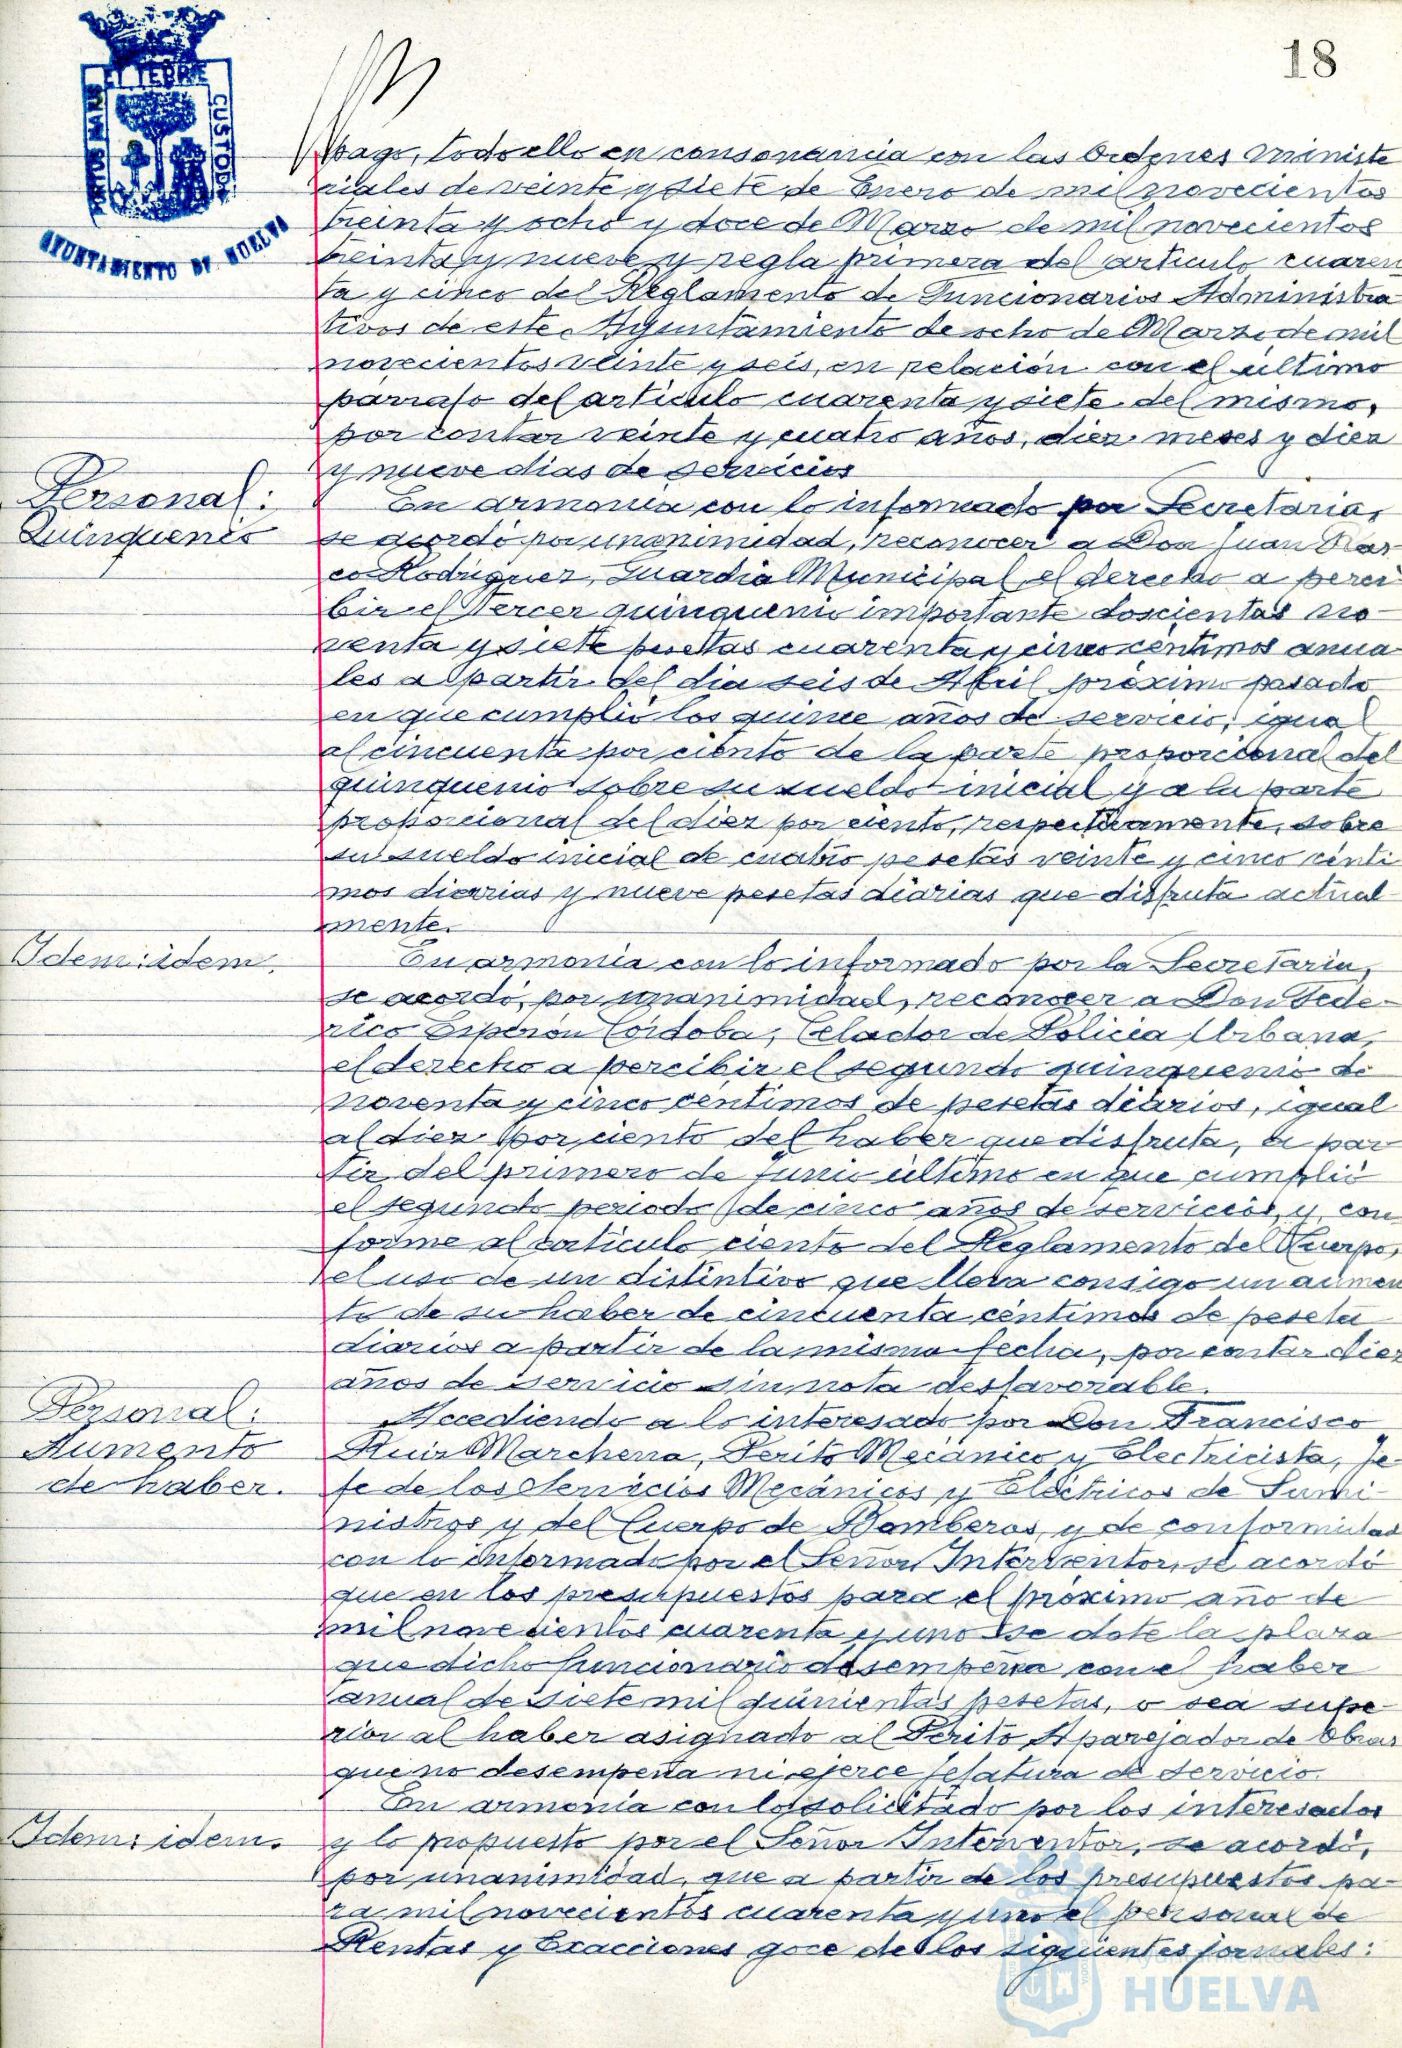 18
PORTUS MARIS ET TERRE CUSTODIA
AYUNTAMIENTO DE HUELVA
pago, todo ello en consonancia con las Ordenes Ministe
riales de veinte y siete de Enero de mil novecientos
treinta y ocho y doce de Marzo de mil novecientos
treinta y nueve y regla primera del articulo cuaren
ta y cinco del Reglamento de Funcionarios Administra
tivos de este Ayuntamiento de ocho de Marzo de mil
novecientos veinte y seis, en relación con el último
párrafo del artículo cuarenta y siete del mismo,
por contar veinte y cuatro años, diez meses y diez
y nueve dias de servicios
Personal:
Quinquenio
En armonía con lo informado por Secretaria,
se acordó por unanimidad, reconocer a Don Juan
co Rodriguez, Guardia Municipal, el derecho a perci
bir el Tercer quinquenio importante doscientas no-
venta y siete pesetas cuarenta y cinco céntimos anua-
les a partir del dia seis de Abril próximo pasado
en que cumplió los quince años de servicio, igual
al cincuenta por ciento de la parte proporcional del
quinquenio sobre su sueldo inicial y a la parte
proporcional del diez por ciento, respectivamente, sobre
su sueldo inicial de cuatro pesetas veinte y cinco cénti
mos diarias y nueve pesetas diarias que disfruta actual-
mente.
Idem: idem.
En armonía con lo informado por la Secretaria,
se acordó, por unanimidad, reconocer a Don Fede-
rico Esperón Córdoba, Celador de Policía Urbana,
el derecho a percibir el segundo quinquenio de
noventa y cinco céntimos de pesetas diarios, igual
al diez por ciento del haber que disfruta, a par
tir del primero de Junio último en que cumplió
el segundo periodo de cinco años de servicios, y, con
forme al artículo ciento del Reglamento del Cuerpo,
el uso de un distintivo que lleva consigo un aumen
to de su haber de cincuenta céntimos de peseta
diarios a partir de la misma fecha, por contar diez
años de servicio sin nota desfavorable.
Personal:
Aumento
de haber.
Accediendo a lo interesado por Don Francisco
Ruiz Marchena, Perito Mecánico y Electricista, Je-
fe de los Servicios Mecánicos y Eléctricos de Sumi-
nistros y del Cuerpo de Bomberos, y de conformidad
con lo informado por el Señor Interventor, se acordó
que en los presupuestos para el próximo año de
mil novecientos cuarenta y uno se dote la plaza
que dicho funcionario desempeña con el haber
anual de siete mil quinientas pesetas, o sea supe-
rior al haber asignado al Perito Aparejador de Obras
que no desempeña ni ejerce jefatura de servicio.
Idem: idem.
En armonía con lo solicitado por los interesados
y lo propuesto por el Señor Interventor, se acordó,
por unanimidad, que a partir de los presupuestos pa-
ra mil novecientos cuarenta y uno el personal de
Rentas y Exacciones goce de los siguientes jornales:
Ayuntamiento de
HUELVA